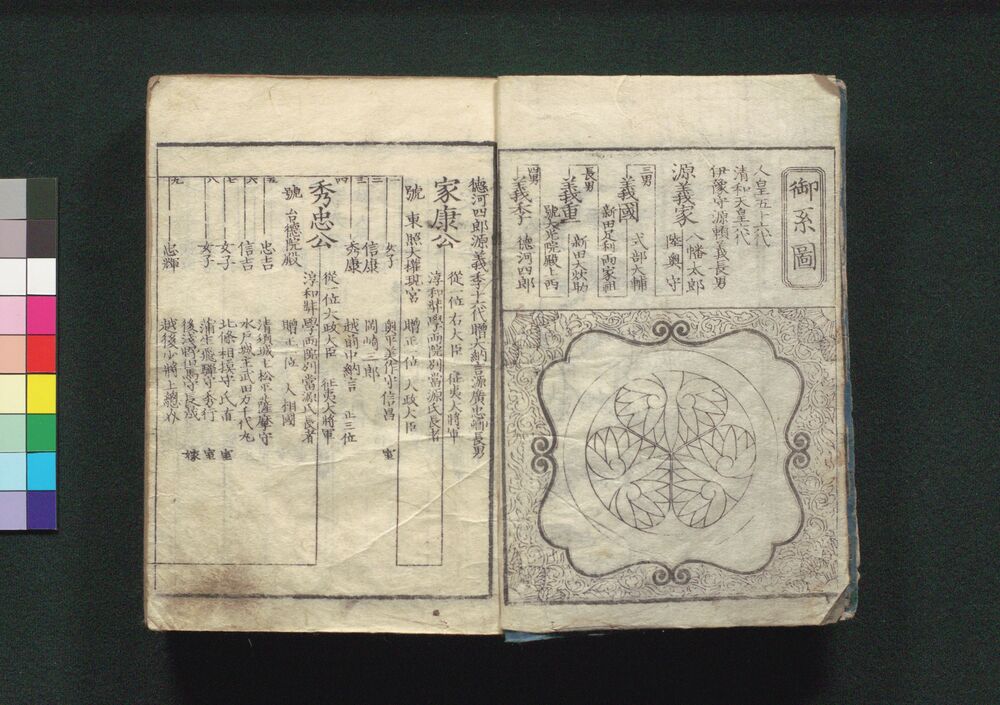 御系圖
人皇五十六代
清和天皇六代
伊豫守源頼義長男
源義家 八幡太郎
陸奥守
三男
義國 式部大輔
新田足利両家祖
長男
義重 新田大炊助
號大光院殿上西
四男
義季 徳河四郎
徳河四郎源義季十六代贈大納言源廣忠卿長男
家康公 従一位右大臣 征夷大将軍
淳和弉學両院別當源氏長者
號 東照大権現宮 贈正一位 大政大臣
女子 奥平美作守信昌 室
二 信康 岡崎三郎
三 秀康 越前中納言 正三位
四
秀忠公 従一位大政大臣 征夷大将軍
淳和弉學両院別當源氏長者
號 台徳院殿 贈正一位 大相國
五 忠吉 清須城主松平薩摩守
六 信吉 水戸城主武田万千代丸
七 女子 北條相模守氏直 室
八 女子 蒲生飛騨守秀行 室
後浅野但馬守長晟 嫁
九 忠輝 越後少将上総介